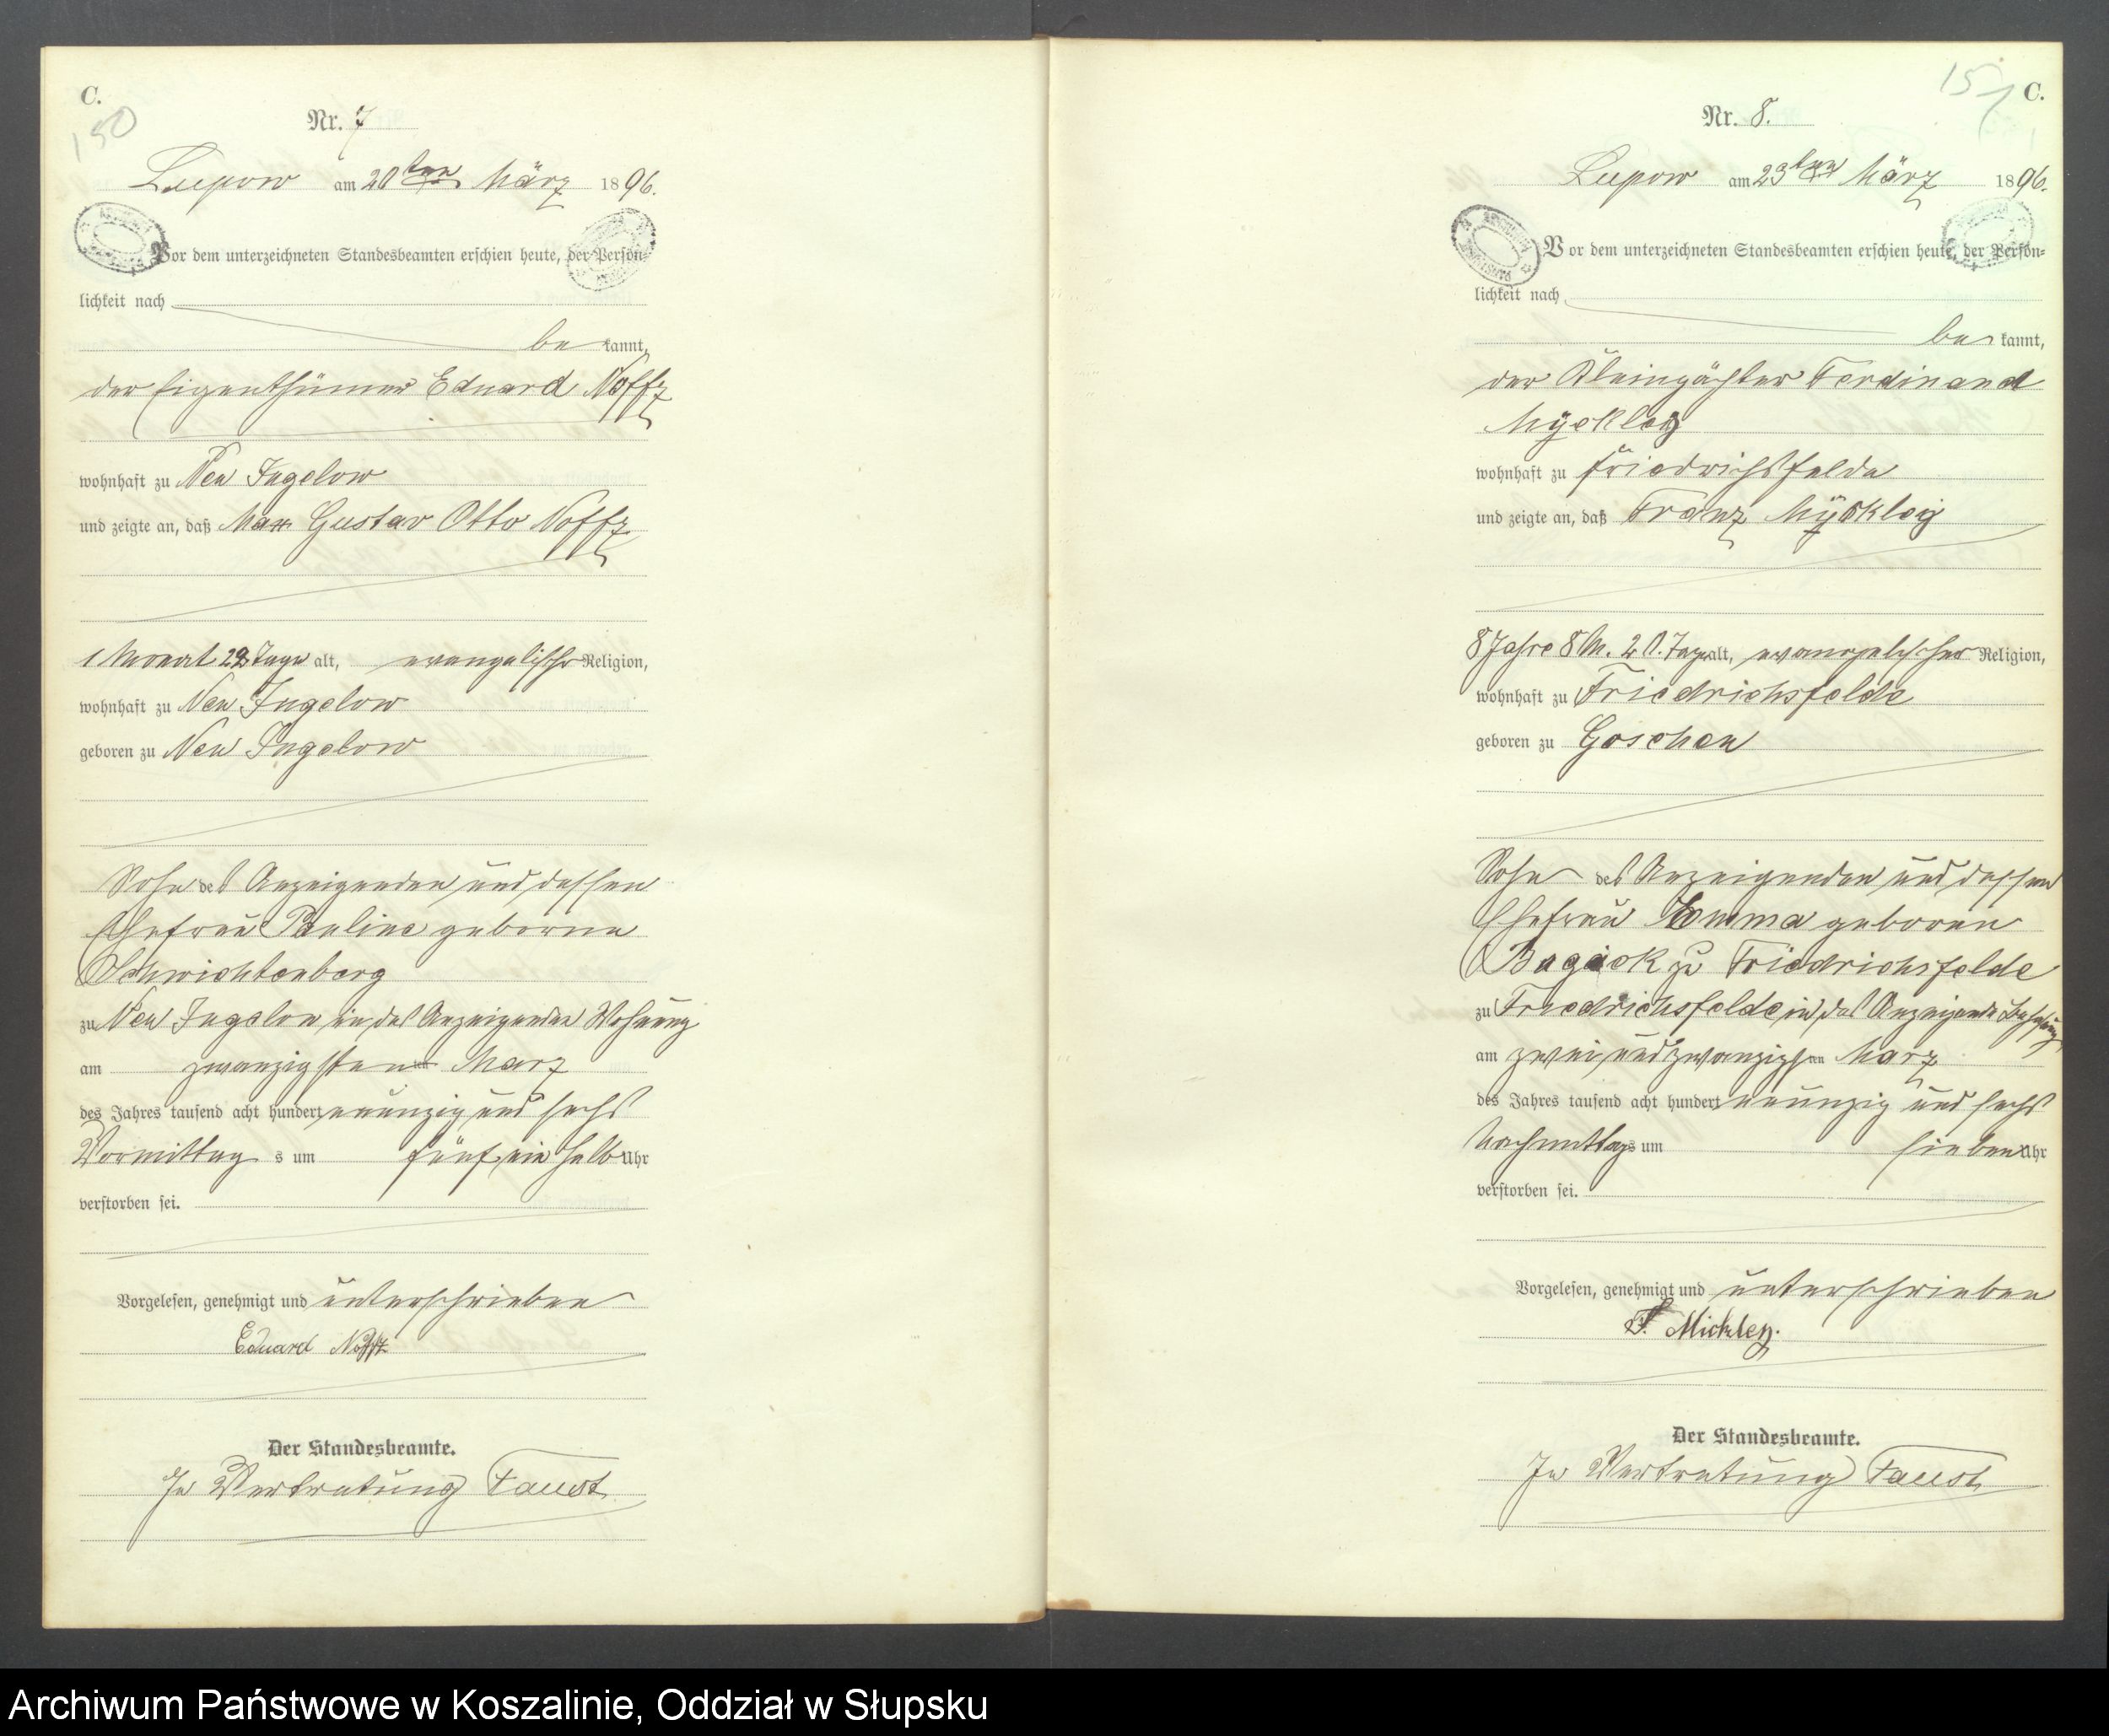 C.
150
Nr. 7
Lupow am 20ten März 1896.
Vor dem unterzeichneten Standesbeamten erschien heute, der Persön-
lichkeit nach
be kannt,
der Eigenthümer Eduard Noffz
wohnhaft zu Neu Jugelow
und zeigte an, daß Max Gustav Otto Noffz
1 Monat 22 Tage alt, evangelischer Religion,
wohnhaft zu Neu Jugelow
geboren zu Neu Jugelow
Sohn des Anzeigenden und dessen
Ehefrau Pauline geborene
Schwichtenberg
zu Neu Jugelow in des Anzeigenden Wohnung
am zwanzigsten März
des Jahres tausend acht hundert neunzig und sechs
Vormittag s um fünf ein halb Uhr
verstorben sei.
Vorgelesen, genehmigt und unterschrieben
Eduard Noffz
Der Standesbeamte.
In Vertretung Faust
151
C.
Nr. 8.
Lupow am 23ten März 1896.
Vor dem unterzeichneten Standesbeamten erschien heute, der Persön-
lichkeit nach
be kannt,
der Kleinpächter Ferdinand
wohnhaft zu Friedrichsfelde
und zeigte an, daß Franz
8 Jahre 8 M. 20. Tage alt, evangelischer Religion,
wohnhaft zu Friedrichsfelde
geboren zu Goschen
Sohn des Anzeigenden und dessen
Ehefrau Emma geboren
zu Friedrichsfelde
zu Friedrichsfelde in des Anzeigende Behausung
am zwei und zwanzigsten März
des Jahres tausend acht hundert neunzig und sechs
Nachmittags um sieben Uhr
verstorben sei.
Vorgelesen, genehmigt und unterschrieben
F. Mickley.
Der Standesbeamte.
In Vertretung Faust
Archiwum Państwowe w Koszalinie, Oddział w Słupsku